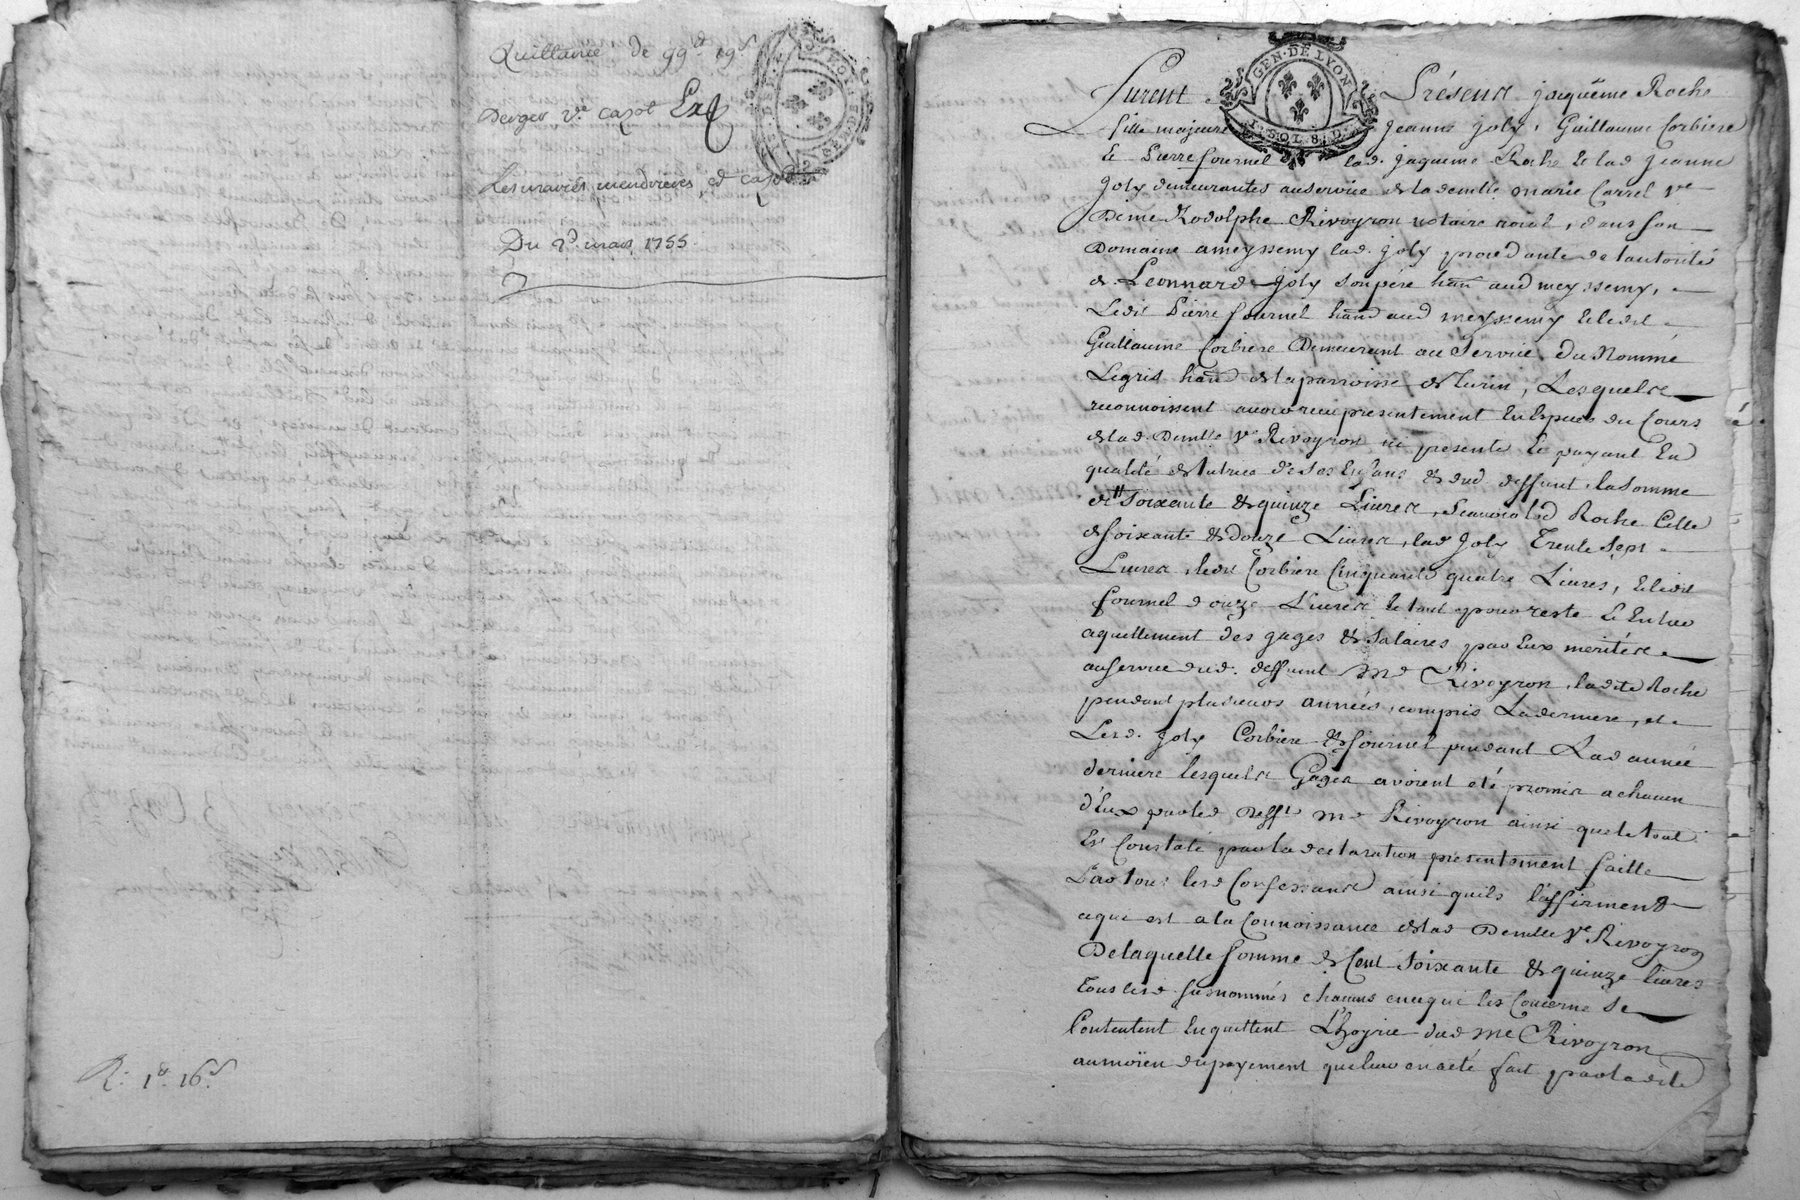 Quittance de 99# 19s
Verger ve capot Exp
Les mariés mendrieres et capot
Du 2d mars 1755.
R. 1# 16s
GEN. DE LYON
I. SOL 8. D.
furent Présens jaquême Roche
fille majeure jeanne joly, Guillaume Corbiere
et Pierre fournel lad. jaqueme Roche et lad jeanne
joly demeurantes au service de la demlle marie Carrel ve
De me Rodolphe Rivoyron notaire roial, dans son
Domaine a meyssemy lad. joly procedante de lautorité
de Leonnard joly son père hant aud meyssemy,
Ledit Pierre fournel hant aud meyssemy et ledit
Guillaume Corbiere Demeurant au service du Nommé
Legris hant de la parroisse de Turin, Lesquels
reconnoissent avoir reçu presentement En Especes du Cours
de lad. Demlle ve Rivoyron ici presente et payant En
qualité de tutrice de ses Enfans & dud deffunt, la somme
de soixante & quinze Livres, scavoir lad Roche Celle
de soixante & douze Livres, lad joly Trente sept
Livres, ledit Corbiere Cinquante quatre Livres, et ledit
fournel douze Livres le tout pour reste et Entier
aquittement des gages & salaires par Eux merités
au service dud. deffunt Me Rivoyron, ladite Roche
pendant plusieurs années, compris Laderniere, et
Lesd. joly Corbiere & fournel pendant Lad année
derniere lesquels Gages avoient été promis a chacun
d'Eux par led Defft me Rivoyron ainsi que le tout
Est Constaté par la declaration presentement faitte
Par tous lesd Confessants ainsi quils l'affirment
ce qui est a la Connoissance de lad Demlle ve Rivoyron
De laquelle somme de Cent soixante & quinze livres
tous lesd susnommés chacuns en ce qui les Concerne se
Contentent En quittent L'hoyrie dud me Rivoyron
au moïen du payement que leur en a été fait par ladite